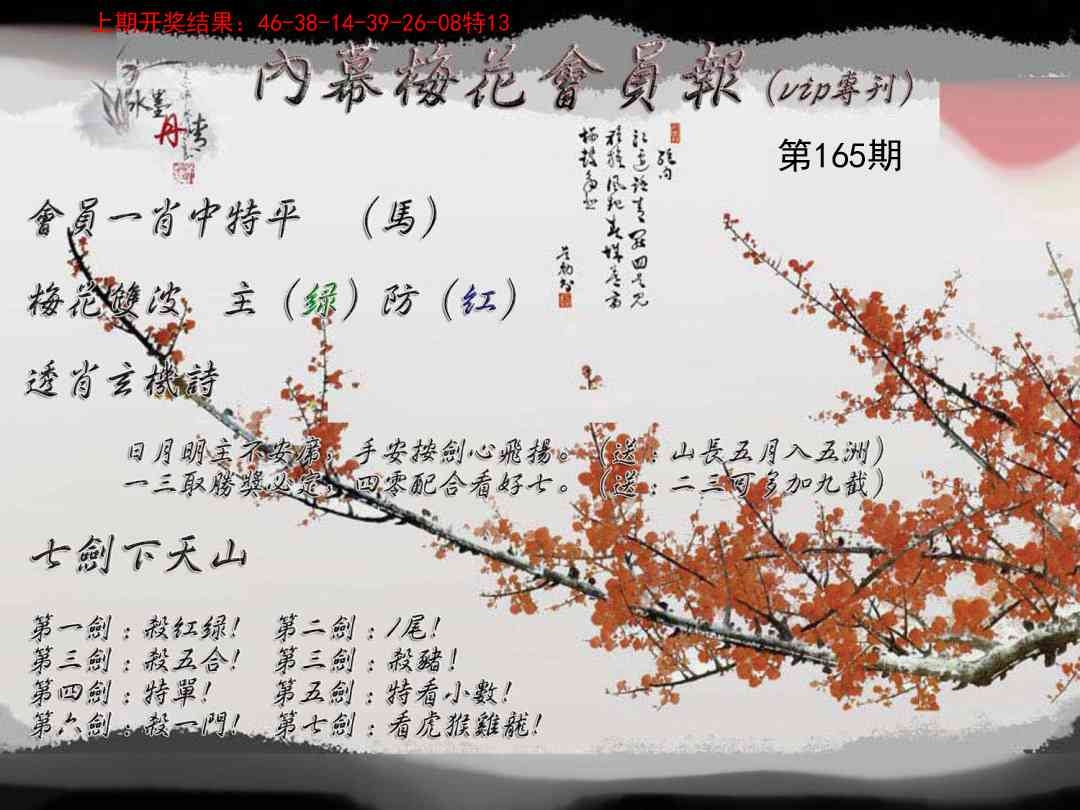 上期开奖结果：46-38-14-39-26-08特13
內幕梅花會員報（vip專刊）
水墨
丹青
第165期
會員一肖中特平 （馬）
梅花雙波 主（绿）防（红）
透肖玄機詩
日月明主不安席，手安按劍心飛揚。（送：山長五月入五洲）
一三取勝獎必定，四零配合看好七。（送：二三可多加九截）
七劍下天山
第一劍：殺红绿！ 第二劍：1尾！
第三劍：殺五合！ 第三劍：殺豬！
第四劍：特單！ 第五劍：特看小數！
第六劍：殺一門！ 第七劍：看虎猴雞龍！